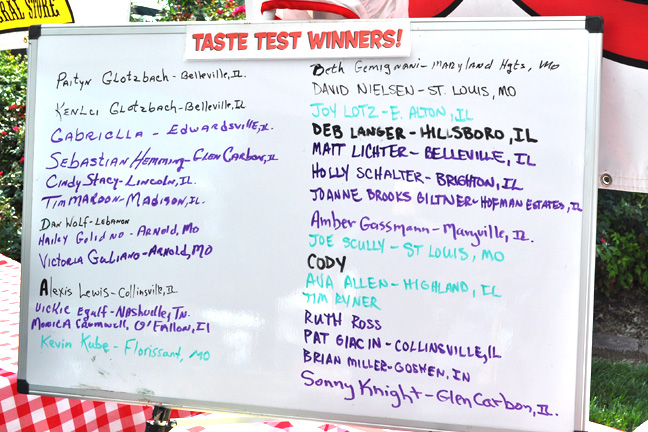 RAL STORE
TASTE TEST WINNERS!
Paityn Glotzbach-Belleville, IL.
Kenlei Glotzbach-Belleville, IL
Gabriella - Edwardsville, IL.
Sebastian Hemming-Glen Carbon, IL
Cindy Stacy-Lincoln, IL.
Tim Mardon-Madison, IL.
Dan Wolf-Lebanon
Hailey Galidno-Arnold, MO
Victoria Guliano-Arnold, MO
Alexis Lewis-Collinsville, IL
Vickie Egulf-Nashville, Tn.
Monica Cromwell, O'Fallon, Il
Kevin Kube-Florissant, MO
Beth Gemignani-Maryland Hgts, MO
DAVID NIELSEN-ST. LOUIS, MO
JOY LOTZ-E. ALTON, IL
DEB LANGER-HILLSBORO, IL
MATT LICHTER-BELLEVILLE, IL
HOLLY SCHALTER-BRIGHTON, IL
JOANNE BROOKS BILTNER-HOFMAN ESTATES, IL
Amber Gassmann-Maryville, IL.
JOE SCULLY-ST LOUIS, MO
CODY
AVA ALLEN-HIGHLAND, IL
TIM RYNER
RUTH ROSS
PAT GIACIN-COLLINSVILLE, IL
BRIAN MILLER-GOSHEN, IN
Sonny Knight-Glen Carbon, IL.